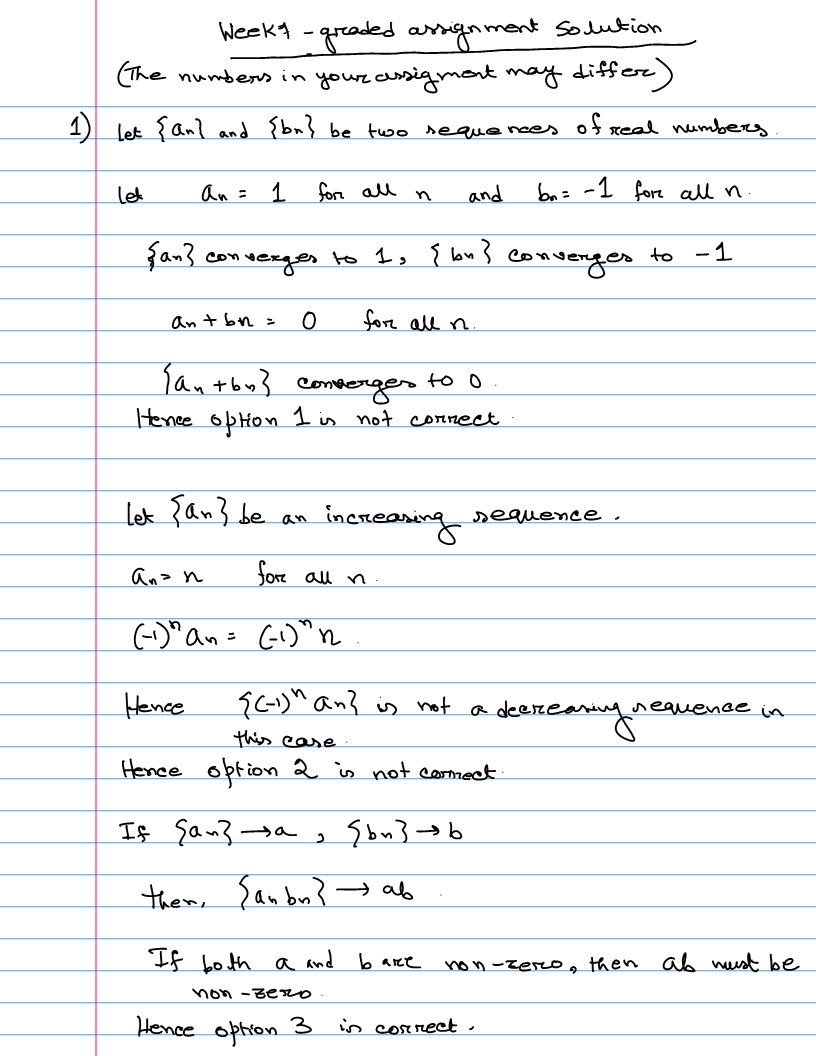 Week 1 - graded assignment Solution
(The numbers in your assigment may differ)
1) Let {an} and {bn} be two sequences of real numbers.
Let an = 1 for all n and bn = -1 for all n.
{an} converges to 1, {bn} converges to -1
an + bn = 0 for all n.
{an + bn} converges to 0.
Hence option 1 is not correct.
Let {an} be an increasing sequence.
an = n for all n.
(-1)ⁿ an = (-1)ⁿ n.
Hence {(-1)ⁿ an} is not a decreasing sequence in
this case.
Hence option 2 is not correct.
If {an} → a, {bn} → b
then, {an bn} → ab.
If both a and b are non-zero, then ab must be
non-zero.
Hence option 3 is correct.